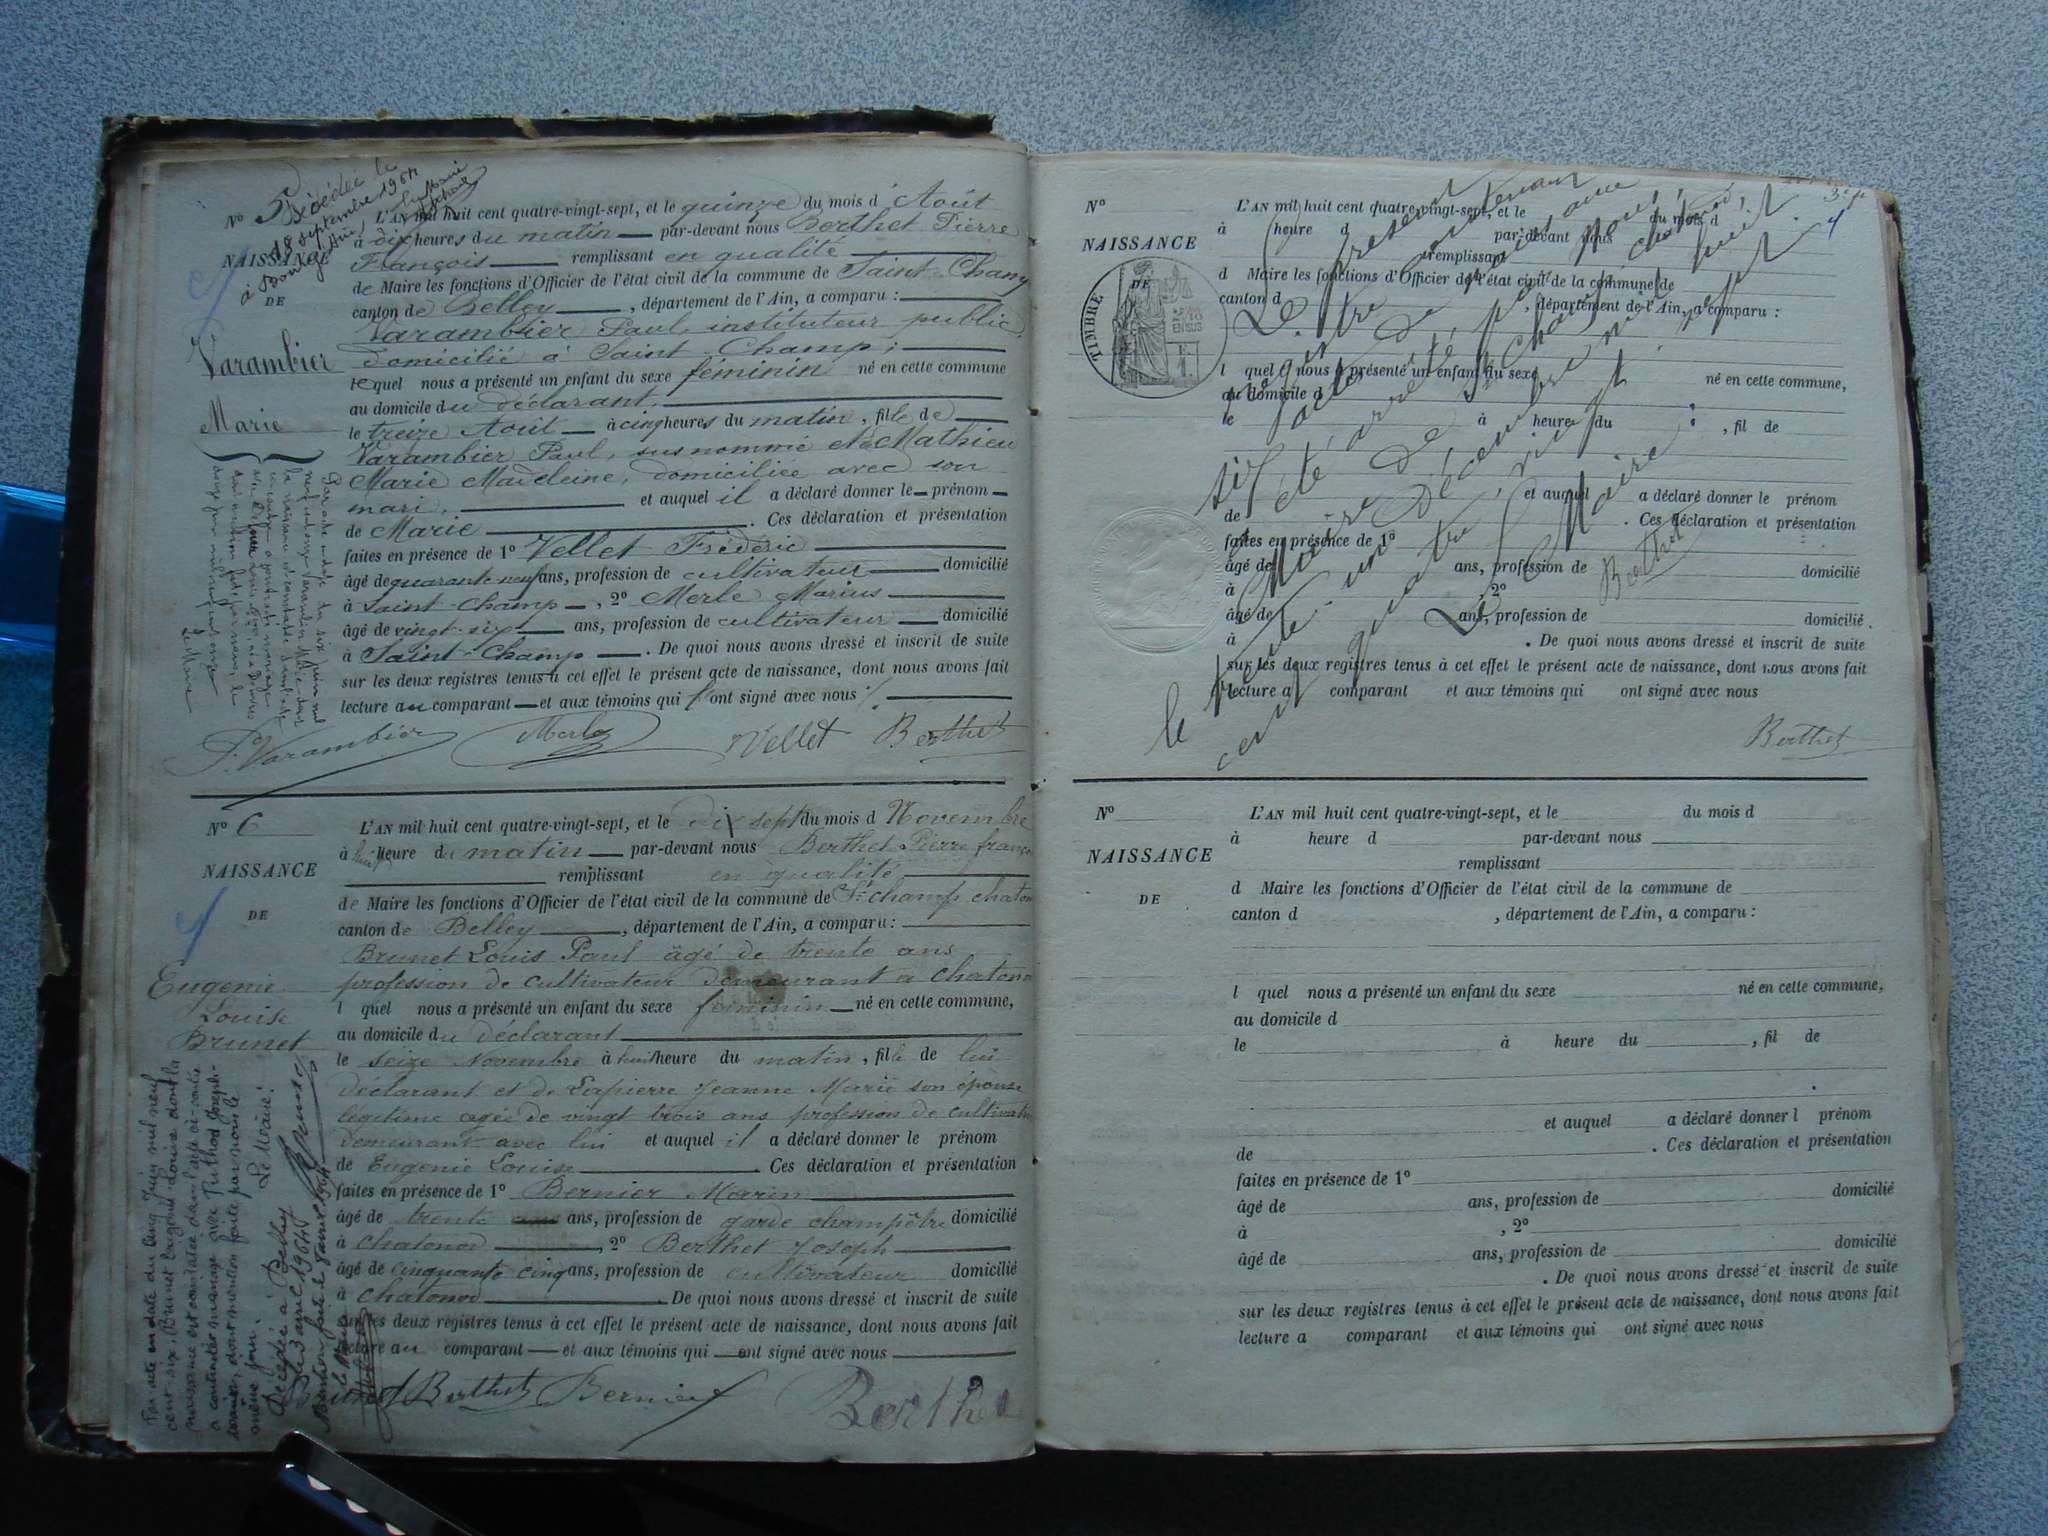 N° 5
Décédée le
18 septembre 1964
à Bourg
NAISSANCE
DE
Varambier
Marie
L'AN mil huit cent quatre-vingt-sept, et le quinze du mois d'Août
à dix heures du matin par-devant nous Berthet Pierre
François remplissant en qualité
de Maire les fonctions d'Officier de l'état civil de la commune de Saint-Champ
canton de Belley, département de l'Ain, a comparu :
Varambier Paul, instituteur public,
domicilié à Saint-Champ ;
lequel nous a présenté un enfant du sexe féminin né en cette commune
au domicile du déclarant,
le treize Août à cinq heures du matin, fille de
Varambier Paul, susnommé et de Mathieu
Marie Madeleine, domiciliée avec son
mari, et auquel il a déclaré donner le prénom
de Marie. Ces déclaration et présentation
faites en présence de 1° Vellet Fréderic
âgé de quarante neuf ans, profession de cultivateur domicilié
à Saint-Champ, 2° Merle Marius
âgé de vingt-six ans, profession de cultivateur domicilié
à Saint-Champ. De quoi nous avons dressé et inscrit de suite
sur les deux registres tenus à cet effet le présent acte de naissance, dont nous avons fait
lecture au comparant et aux témoins qui l'ont signé avec nous.
P. Varambier Merle Vellet Berthet
Par acte en date du six juin mil
neuf cent onze Varambier Marie dont
la naissance est constatée d'autre part
Le Maire
N° 6
NAISSANCE
DE
Eugenie
Louise
Brunet
L'AN mil huit cent quatre-vingt-sept, et le dix sept du mois d Novembre
à huit heure du matin par-devant nous Berthet Pierre françois
remplissant en qualité
de Maire les fonctions d'Officier de l'état civil de la commune de St champ chaton
canton de Belley, département de l'Ain, a comparu :
Brunet Louis Paul âgé de trente ans
profession de cultivateur demeurant a chatonod
l quel nous a présenté un enfant du sexe feminin né en cette commune,
au domicile du déclarant
le seize Novembre à huit heure du matin, fille de lui
déclarant et de Lapierre Jeanne Marie son épouse
légitime agée de vingt trois ans profession de cultivatr
demeurant avec lui et auquel il a déclaré donner le prénom
de Eugenie Louise. Ces déclaration et présentation
faites en présence de 1° Bernier Marin
âgé de trente ans ans, profession de garde champêtre domicilié
à chatonod, 2° Berthet Joseph
âgé de cinquante cinq ans, profession de cultivateur domicilié
à chatonod. De quoi nous avons dressé et inscrit de suite
sur les deux registres tenus à cet effet le présent acte de naissance, dont nous avons fait
lecture au comparant et aux témoins qui ont signé avec nous
Brunet Berthet Bernier Berthet
Par acte en date du cinq Juin mil neuf
cent six, Brunet Eugénie Louise dont la
naissance est constatée dans l'acte ci-contre
a contracté mariage avec Puthod Joseph
dont mention faite par nous le
même jour.
Le Maire :
Décédée à Belley
le 3 avril 1964
Le Maire
N°
NAISSANCE
DE
TIMBRE
EN SUS
L'AN mil huit cent quatre-vingt-sept, et le du mois d
à heure d par-devant nous
remplissant
d Maire les fonctions d'Officier de l'état civil de la commune de
canton d , département de l'Ain, a comparu :
l quel nous a présenté un enfant du sexe né en cette commune,
au domicile d
le à heure du , fil de
et auquel a déclaré donner le prénom
de . Ces déclaration et présentation
faites en présence de 1°
âgé de ans, profession de domicilié
à , 2°
âgé de ans, profession de domicilié
à . De quoi nous avons dressé et inscrit de suite
sur les deux registres tenus à cet effet le présent acte de naissance, dont nous avons fait
lecture a comparant et aux témoins qui ont signé avec nous
Le présent
registre contenant
six actes de naissance
a été arrêté par nous,
Maire de St Champ chatonod,
le trente-un Décembre mil huit
cent quatre-vingt-sept.
Le Maire :
Berthet
Berthet
N°
NAISSANCE
DE
L'AN mil huit cent quatre-vingt-sept, et le du mois d
à heure d par-devant nous
remplissant
d Maire les fonctions d'Officier de l'état civil de la commune de
canton d , département de l'Ain, a comparu :
l quel nous a présenté un enfant du sexe né en cette commune,
au domicile d
le à heure du , fil de
et auquel a déclaré donner l prénom
de . Ces déclaration et présentation
faites en présence de 1°
âgé de ans, profession de domicilié
à , 2°
âgé de ans, profession de domicilié
. De quoi nous avons dressé et inscrit de suite
sur les deux registres tenus à cet effet le présent acte de naissance, dont nous avons fait
lecture a comparant et aux témoins qui ont signé avec nous